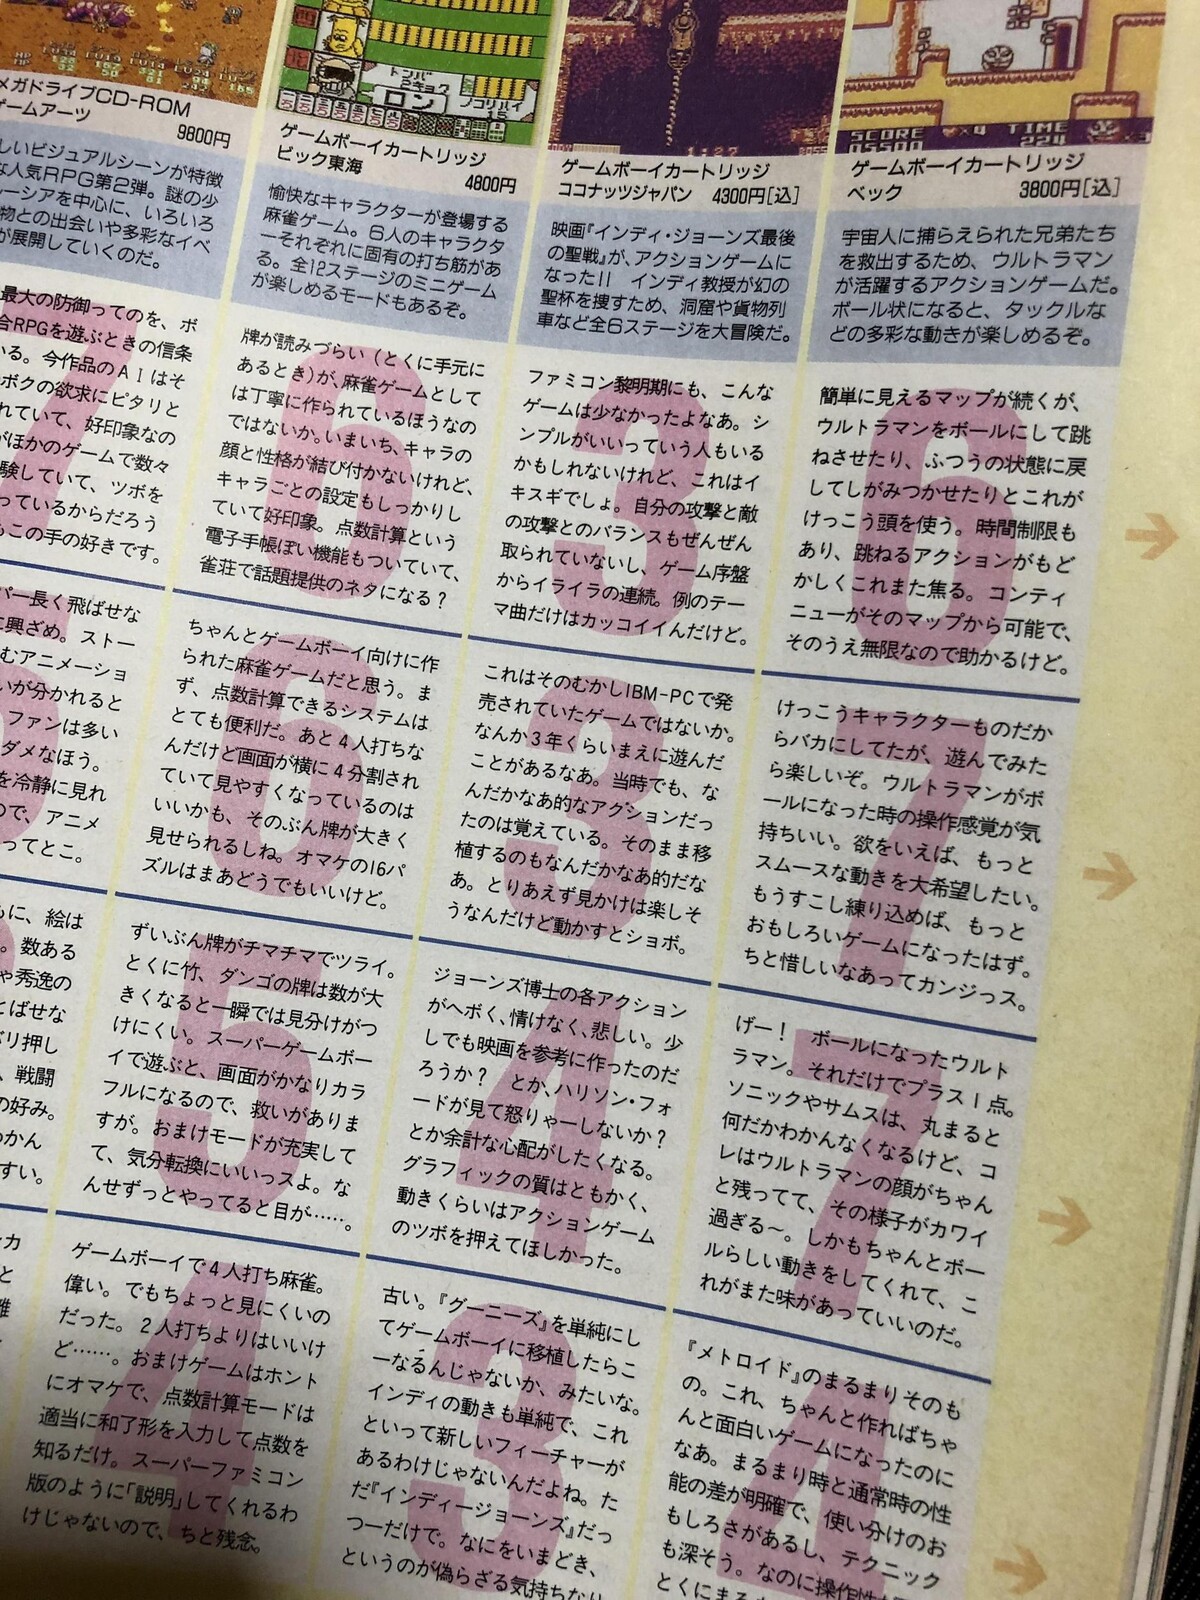 メガドライブCD-ROM
ゲームアーツ
9800円
しいビジュアルシーンが特徴
な人気RPG第2弾。謎の少
ーシアを中心に、いろいろ
物との出会いや多彩なイベ
が展開していくのだ。
最大の防御ってのを、ボ
合RPGを遊ぶときの信条
いる。今作品のAIはそ
ボクの欲求にピタリと
れていて、好印象なの
がほかのゲームで数々
験していて、ツボを
っているからだろう
もこの手の好きです。
7
パー長く飛ばせな
に興ざめ。ストー
むアニメーショ
いが分かれると
ファンは多い
ダメなほう。
を冷静に見れ
ので、アニメ
ってとこ。
に、絵は
。数ある
ゃ秀逸の
とばせな
バリ押し
、戦闘
の好み。
わかん
すい。
トンパ
2キョク
ロン
ノコリハイ
15
ゲームボーイカートリッジ
ビック東海
4800円
愉快なキャラクターが登場する
麻雀ゲーム。6人のキャラクタ
ーそれぞれに固有の打ち筋があ
る。全12ステージのミニゲーム
が楽しめるモードもあるぞ。
牌が読みづらい(とくに手元に
あるとき)が、麻雀ゲームとして
は丁寧に作られているほうなの
ではないか。いまいち、キャラの
顔と性格が結び付かないけれど、
キャラごとの設定もしっかりし
ていて好印象。点数計算という
電子手帳ぽい機能もついていて、
雀荘で話題提供のネタになる?
6
ちゃんとゲームボーイ向けに作
られた麻雀ゲームだと思う。ま
ず、点数計算できるシステムは
とても便利だ。あと4人打ちな
んだけど画面が横に4分割され
ていて見やすくなっているのは
いいかも、そのぶん牌が大きく
見せられるしね。オマケの16パ
ズルはまあどうでもいいけど。
6
ずいぶん牌がチマチマでツライ。
とくに竹、ダンゴの牌は数が大
きくなると一瞬では見分けがつ
けにくい。スーパーゲームボー
イで遊ぶと、画面がかなりカラ
フルになるので、救いがありま
すが。おまけモードが充実して
て、気分転換にいいっスよ。な
んせずっとやってると目が……。
5
ゲームボーイで4人打ち麻雀。
偉い。でもちょっと見にくいの
だった。2人打ちよりはいいけ
ど……。おまけゲームはホント
にオマケで、点数計算モードは
適当に和了形を入力して点数を
知るだけ。スーパーファミコン
版のように「説明」してくれるわ
けじゃないので、ちと残念。
4
ゲームボーイカートリッジ
ココナッツジャパン 4300円[込]
映画『インディ・ジョーンズ最後
の聖戦』が、アクションゲームに
なった!! インディ教授が幻の
聖杯を捜すため、洞窟や貨物列
車など全6ステージを大冒険だ。
ファミコン黎明期にも、こんな
ゲームは少なかったよなあ。シ
ンプルがいいっていう人もいる
かもしれないけれど、これはイ
キスギでしょ。自分の攻撃と敵
の攻撃とのバランスもぜんぜん
取られていないし、ゲーム序盤
からイライラの連続。例のテー
マ曲だけはカッコイイんだけど。
3
これはそのむかしIBM-PCで発
売されていたゲームではないか。
なんか3年くらいまえに遊んだ
ことがあるなあ。当時でも、な
んだかなあ的なアクションだっ
たのは覚えている。そのまま移
植するのもなんだかなあ的だな
あ。とりあえず見かけは楽しそ
うなんだけど動かすとショボ。
3
ジョーンズ博士の各アクション
がヘボく、情けなく、悲しい。少
しでも映画を参考に作ったのだ
ろうか? とか、ハリソン・フォ
ードが見て怒りゃーしないか?
とか余計な心配がしたくなる。
グラフィックの質はともかく、
動きくらいはアクションゲーム
のツボを押えてほしかった。
4
古い。『グーニーズ』を単純にし
てゲームボーイに移植したらこ
ーなるんじゃないか、みたいな。
インディの動きも単純で、これ
といって新しいフィーチャーが
あるわけじゃないんだよね。た
だ『インディージョーンズ』だっ
つーだけで。なにをいまどき、
というのが偽らざる気持ちなり
3
SCORE
05500
×4
TIME
224
ゲームボーイカートリッジ
ベック
3800円[込]
宇宙人に捕らえられた兄弟たち
を救出するため、ウルトラマン
が活躍するアクションゲームだ。
ボール状になると、タックルな
どの多彩な動きが楽しめるぞ。
簡単に見えるマップが続くが、
ウルトラマンをボールにして跳
ねさせたり、ふつうの状態に戻
してしがみつかせたりとこれが
けっこう頭を使う。時間制限も
あり、跳ねるアクションがもど
かしくこれまた焦る。コンティ
ニューがそのマップから可能で、
そのうえ無限なので助かるけど。
6
けっこうキャラクターものだか
らバカにしてたが、遊んでみた
ら楽しいぞ。ウルトラマンがボ
ールになった時の操作感覚が気
持ちいい。欲をいえば、もっと
スムースな動きを大希望したい。
もうすこし練り込めば、もっと
おもしろいゲームになったはず。
ちと惜しいなあってカンジっス。
7
げー! ボールになったウルト
ラマン。それだけでプラス1点。
ソニックやサムスは、丸まると
何だかわかんなくなるけど、コ
レはウルトラマンの顔がちゃん
と残ってて、その様子がカワイ
過ぎる〜。しかもちゃんとボー
ルらしい動きをしてくれて、こ
れがまた味があっていいのだ。
7
『メトロイド』のまるまりそのも
の。これ、ちゃんと作ればちゃ
んと面白いゲームになったのに
なあ。まるまり時と通常時の性
能の差が明確で、使い分けのお
もしろさがあるし、テクニック
も深そう。なのに操作性
とくにまる
4